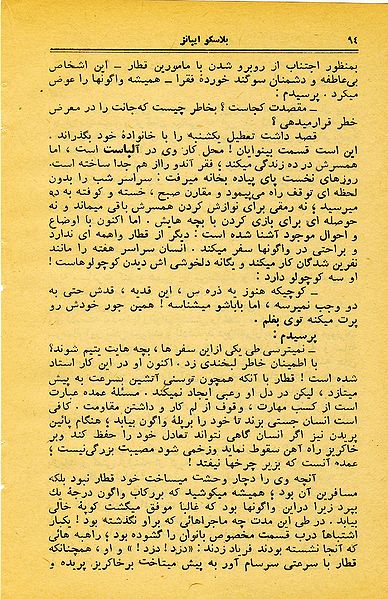 ۹٤
بلاسکو ایبانز
بمنظور اجتناب از روبرو شدن با مامورین قطار – این اشخاص
بی‌عاطفه و دشمنان سوگند خوردهٔ فقرا – همیشه واگونها را عوض
میکرد . پرسیدم :
– مقصدت کجاست ؟ بخاطر چیست که جانت را در معرض
خطر قرار میدهی ؟
قصد داشت تعطیل یکشنبه را با خانوادهٔ خود بگذراند .
این است قسمت بینوایان ! محل کار وی در آلباست است ، اما
همسرش در ده زندگی میکند ؛ فقر آندو را از هم جدا ساخته است.
روزهای نخست پای پیاده بخانه میرفت : سراسر شب را بدون
لحظه ای توقف راه می‌پیمود و مقارن صبح ، خسته و کوفته به ده
میرسید ؛ نه رمقی برای نوازش کردن همسرش باقی میماند و نه
حوصله ای برای بازی کردن با بچه هایش . اما اکنون با اوضاع
و احوال موجود آشنا شده است : دیگر از قطار واهمه ای ندارد
و براحتی در واگونها سفر میکند . انسان سراسر هفته را مانند
نفرین شدگان کار میکند و یگانه دلخوشی اش دیدن کوچولوهاست !
او سه کوچولو دارد :
– کوچیکه هنوز به ذره س ، این قدیه ، قدش حتی به
دو وجب نمیرسه ، اما باباشو میشناسه ! همین جور خودش رو
پرت میکنه توی بغلم .
پرسیدم :
– نمیترسی طی یکی از این سفر ها ، بچه هایت یتیم شوند؟
با اطمینان خاطر لبخندی زد . اکنون او در این کار استاد
شده است ! قطار با آنکه همچون توسنی آتشین بسرعت به پیش
میتازد ، لیکن در دل او رعبی ایجاد نمیکند . مسئلهٔ عمده عبارت
است از کسب مهارت ، وقوف از لم کار و داشتن مقاومت . کافی
است انسان جستی بزند تا خود را بر پلهٔ واگون بیابد ؛ هنگام پائین
پریدن نیز اگر انسان گاهی نتواند تعادل خود را حفظ کند وبر
خاکریز راه آهن سقوط نماید وزخمی شود مصیبت بزرگی نیست ؛
عمده آنست که بزیر چرخها نیفتد !
آنچه وی را دچار وحشت میساخت خود قطار نبود بلکه
مسافرین آن بود ؛ همیشه میکوشید که بررکاب واگون درجهٔ یك
بپرد زیرا دراین واگونها بود که غالبا موفق میگشت کوپهٔ خالی
بیابد . در طی این مدت چه ماجراهائی که براو نگذشته بود ! یکبار
اشتباها درب قسمت مخصوص بانوان را گشوده بود ؛ راهبه هائی
که آنجا نشسته بودند فریاد زدند : «دزد ! دزد ! » و او ، همچنانکه
قطار با سرعتی سرسام آور به پیش میتاخت برخاکریز پریده و